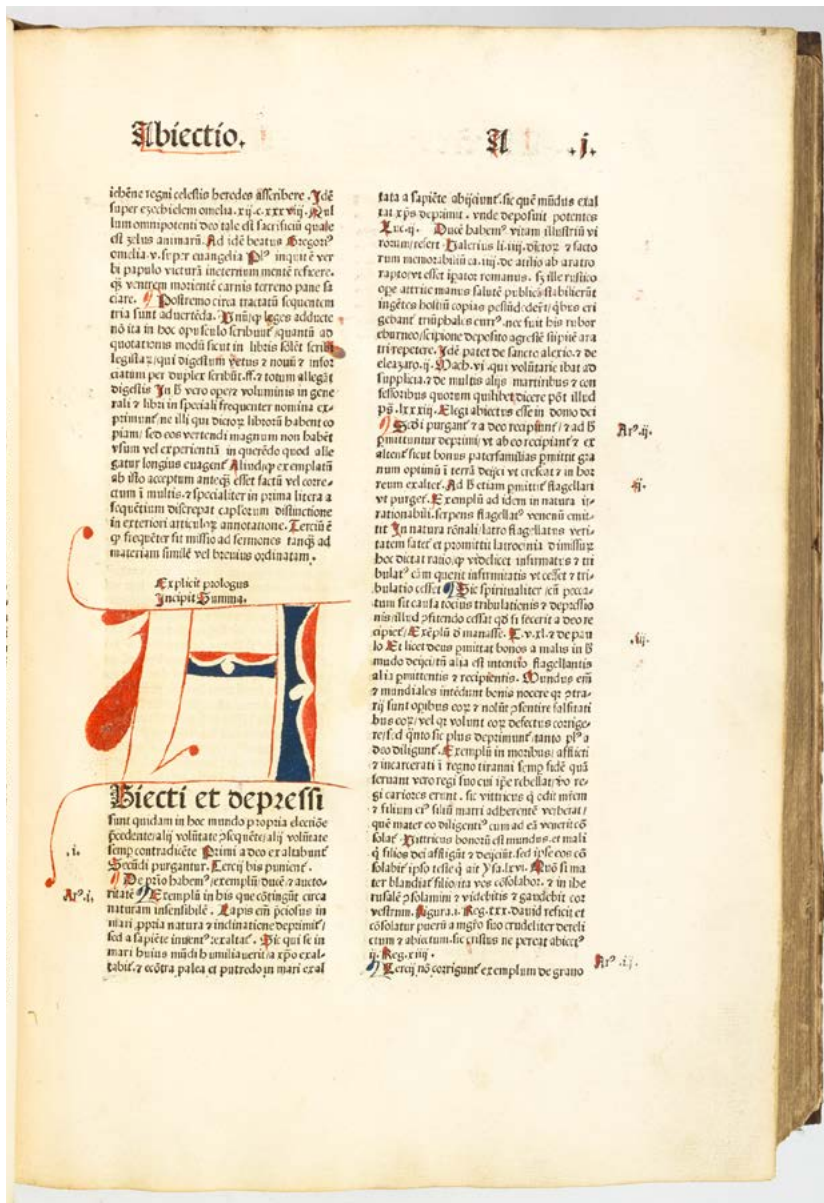 Abiectio.
A .j.
ichēne regni celestis heredes asscribere. Idē
super ezechielem omelia. xij. c. xxxviij. Nul
lum omnipotenti deo tale est sacrificiū quale
est zelus animarū. Ad idē beatus Gregoriꝰ
omelia. v. super euangelia Plꝰ inquit ē ver
bi papulo victurā ineternum mentē reficere.
qꝫ ventrem morientē carnis terreno pane sa
ciare. Postremo circa tractatū sequentem
tria sunt aduertēda. Unū/ꝙ leges adducte
nō ita in hoc opusculo scribunt᷑/quantū ad
quotationis modū sicut in libris solēt scribi
legistaꝝ/qui digestum vetus ⁊ nouū ⁊ infor
ciatum per duplex scribūt. ff. ⁊ totum allegāt
digestis In h̄ vero ope/⁊ voluminis in gene
rali ⁊ libri in speciali frequenter nomina ex-
primunt᷑/ne illi qui dictoꝝ librorū habent co
piam/sed eos vertendi magnum non habēt
vsum vel experientiā in querēdo quod alle
gatur longius euagent᷑ Aliud/ꝙ exemplatū
ab isto acceptum anteqꝫ esset factū vel corre-
ctum ī multis. ⁊ specialiter in prima litera a
sequētiū discrepat capłorum distinctione
in exteriori articuloꝝ annotatione. Terciū ē
ꝙ frequēter fit missio ad sermones tanqꝫ ad
materiam similē vel breuius ordinatam.
Explicit prologus
Incipit Summa.
A
Biecti et depressi
sunt quidam in hoc mundo propria electiōe
p̄cedente/alij volūtate ꝓsequēte/alij volūtate
semꝑ contradicēte Primi a deo exaltabunt᷑
.i.
Secūdi purgantur. Tercij his punient᷑.
De prīo habemꝰ/exemplū/ducē/⁊ aucto-
Arꝰ.i.
ritatē Exemplū in his que cōtingūt circa
naturam insensibilē. Lapis em̄ p̄ciosus in
mari ꝓpria natura ⁊ inclinatione deprimit᷑/
sed a sapiēte inuentꝰ exaltat᷑. Sic qui se in
mari huius mūdi humiliauerit/a xp̄o exal-
tabit᷑. ⁊ ecōtra palea et putredo in mari exal
tata a sapiēte abijciunt᷑. sic quē mūdus exal
tat xp̄s deprimit. vnde deposuit potentes
Luc. ij. Ducē habemꝰ vitam illustriū vi
rorum/refert Valerius li. iiij. dictoꝝ ⁊ facto
rum memorabiliū ca. iiij. de atilio ab aratro
rapto/vt esset īpator romanus. sꝫ ille rustico
ope attrite manus salutē publicā stabilierūt
ingētes hostiū copias pessūdedert̄/qͥbus eri
gebant᷑ triūphales currꝰ. nec fuit his rubor
eburneo/scipione deposito agrestē stipitē ara
tri repetere. Idē patet de sancto alexio. ⁊ de
eleazaro. ij. Mach. vi. qui volūtarie ibat ad
supplicia. ⁊ de multis alijs martiribus ⁊ con
fessoribus quorum quilibet dicere pōt illud
ps̄. lxxxiij. Elegi abiectus esse in domo dei
Arꝰ.ij.
Scd̄i purgant᷑ ⁊ a deo recipiunt᷑/⁊ ad h̄
ꝑmittuntur deprimi/vt ab eo recipiant᷑ ⁊ ex
altent᷑ sicut bonus paterfamilias ꝑmittit gra
num optimū ī terrā deijci vt crescat ⁊ in hor
.ij.
reum exaltet᷑. Ad h̄ etiam ꝑmittit᷑ flagellari
vt purget᷑. Exemplū ad idem in natura ir-
rationabili. serpens flagellatꝰ venenū emit-
tit In natura rōnali/latro flagellatus veri-
tatem fatet᷑ et promittit latrocinia dimissuꝝ
hoc dictat ratio/ꝙ videlicet infirmatus ⁊ tri
bulatꝰ cām querit infirmitatis vt cesset ⁊ tri-
bulatio cesset Sic spiritualiter/cū pecca-
tum sit causa tocius tribulationis ⁊ depressio
nis/illud ꝯfitendo cessat qd̄ si fecerit a deo re
cipiet᷑/Exēplū d̄ manasse. T. v. xl. ⁊ de pau
.iij.
lo Et licet deus ꝑmittat bonos a malis in h̄
mūdo deijci/tn̄ alia est intentio flagellantis
alia ꝑmittentis ⁊ recipientis. Mundus em̄
⁊ mundiales intēdunt bonis nocere qꝛ ꝯtra-
rij sunt opibus eoꝝ ⁊ nolūt ꝯsentire falsitati
bus eoꝝ/vel qꝛ volunt eoꝝ defectus corrige-
re/sed qͣnto sic plus deprimunt᷑/tanto plꝰ a
deo diligunt᷑. Exemplū in moribus/afflicti
⁊ incarcerati ī regno tiranni semꝑ fidē quā
seruant vero regi suo cui ip̄e rebellat/vō re-
gi cariores erunt. sic vittricus qͥ odit mr̄em
⁊ filium eiꝰ filiū matri adherentē verberat/
quē mater eo diligentiꝰ cum ad eā venerit cō
solat᷑. Vittricus bonorū est mundus. et mali
qͥ filios dei affligūt ⁊ deijciūt. sed ipse eos cō
solabit᷑ ipso teste qͥ ait ysa. lxvi. Quō si ma
ter blandiat᷑ filio/ita vos cōsolabor. ⁊ in ihe
rusalē ꝯsolamini ⁊ videbitis ⁊ gaudebit cor
vestrum. Figura. i. Reg. xxx. dauid reficit et
cōsolatur puerū a mgr̄o suo crudeliter dereli
ctum ⁊ abiectum. sic cristus ne pereat abiectꝰ
ij. Reg. xiiij.
Arꝰ.iij.
Tercij nō corrigunt᷑ exemplum de grano